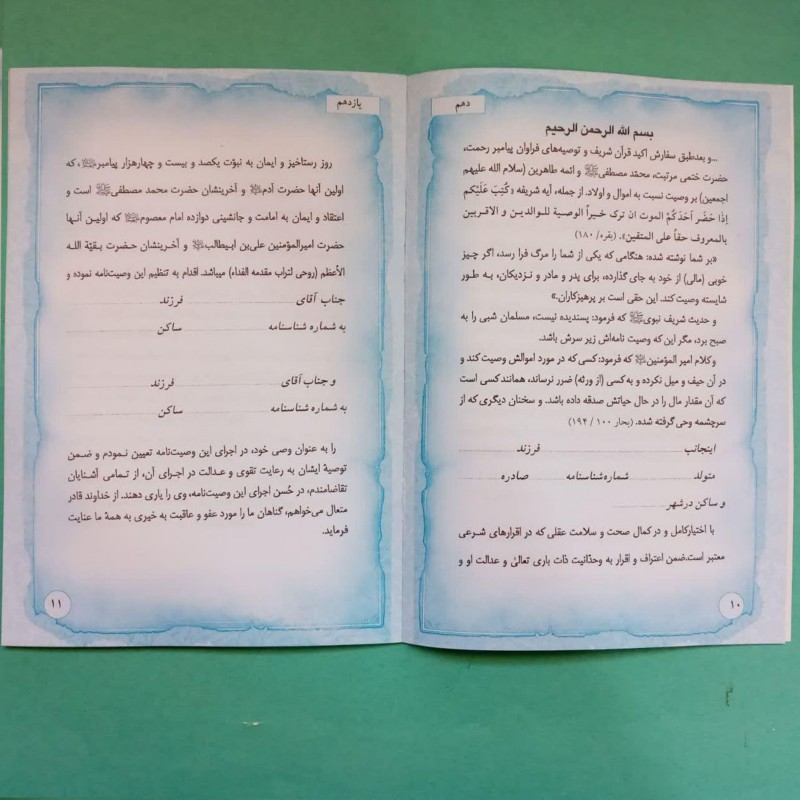 دهم
بسم الله الرحمن الرحیم
...و بعد طبق سفارش اکید قرآن شریف و توصیه‌های فراوان پیامبر رحمت،
حضرت ختمی مرتبت، محمّد مصطفیﷺ و ائمه طاهرین (سلام الله علیهم
اجمعین) بر وصیت نسبت به اموال و اولاد. از جمله، آیه شریفه وکُتِبَ عَلَیْکم
إذَا حَضَر أَحَدَکُمْ الموت ان ترک خیراً الوصیة للوالدین و الاقربین
بالمعروف حقاً علی المتقین». (بقره/ ۱۸۰)
«بر شما نوشته شده: هنگامی که یکی از شما را مرگ فرا رسد، اگر چیز
خوبی (مالی) از خود به جای گذارده، برای پدر و مادر و نزدیکان، به طور
شایسته وصیت کند. این حقی است بر پرهیزکاران.»
و حدیث شریف نبویﷺ که فرمود: پسندیده نیست، مسلمان شبی را به
صبح برد، مگر این که وصیت نامه‌اش زیر سرش باشد.
وکلام امیر المؤمنین که فرمود: کسی که در مورد اموالش وصیت کند و
در آن حیف و میل نکرده و به کسی (از ورثه) ضرر نرساند، همانند کسی است
که آن مقدار مال را در حال حیاتش صدقه داده باشد. و سخنان دیگری که از
سرچشمه وحی گرفته شده. (بحار ۱۰۰ / ۱۹۴)
اینجانب فرزند
متولد شماره شناسنامه صادره
و ساکن در شهر
با اختیار کامل و در کمال صحت و سلامت عقلی که در اقرارهای شرعی
معتبر است.ضمن اعتراف و اقرار به وحدانیت ذات باری تعالیٰ و عدالت او و
۱۰
یازدهم
روز رستاخیز و ایمان به نبوّت یکصد و بیست و چهارهزار پیامبر، که
اولین آنها حضرت آدم و آخرینشان حضرت محمد مصطفیﷺ است و
اعتقاد و ایمان به امامت و جانشینی دوازده امام معصوم که اولین آنها
حضرت امیرالمؤمنین علی‌بن ابیطالب و آخرینشان حضرت بقیّة الله
الأعظم (روحی لتراب مقدمه الفداء) میباشد. اقدام به تنظیم این وصیت‌نامه نموده و
جناب آقای فرزند
به شماره شناسنامه ساکن
و جناب آقای فرزند
به شماره شناسنامه ساکن
را به عنوان وصی خود، در اجرای این وصیت‌نامه تعیین نمودم و ضمن
توصیهٔ ایشان به رعایت تقوی و عدالت در اجرای آن، از تمامی آشنایان
تقاضامندم، در حُسن اجرای این وصیت‌نامه، وی را یاری دهند. از خداوند قادر
متعال می‌خواهم، گناهان ما را مورد عفو و عاقبت به خیری به همهٔ ما عنایت
فرماید.
۱۱